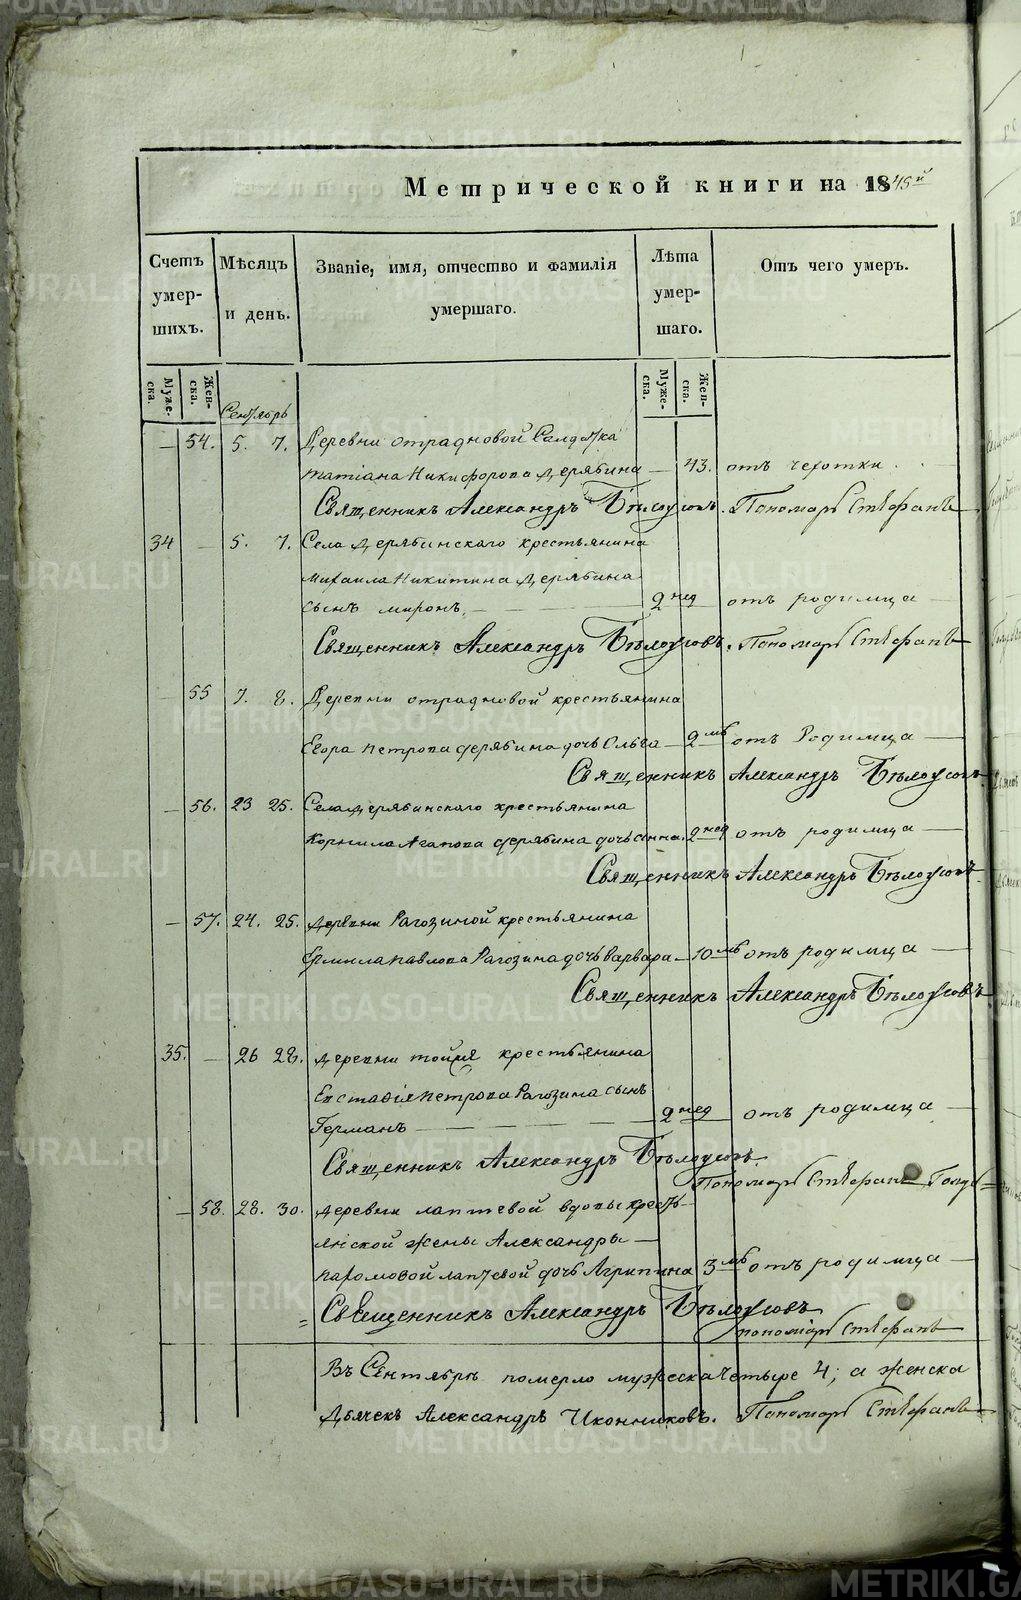 Метрической книги на 1845й
Счетъ умер- шихъ.
Мѣсяцъ и день.
Званіе, имя, отчество и фамилія умершаго.
Лѣта умер- шаго.
Отъ чего умеръ.
Муже- ска.
Жен- ска.
Муже- ска.
Жен- ска.
Сентябрь
— 54. 5. 7. Деревни отрадновой Солдатка
татіана Никифорова дерябина — 43. отъ чехотки
Священникъ Александръ Бѣлоусовъ. Пономарь Стефанъ
34 — 5. 7. Села дерябинскаго крестьянина
михаила Никитина дерябина
сынъ миронъ — 2 нед отъ родимца —
Священникъ Александръ Бѣлоусовъ. Пономарь Стефанъ
— 55 7. 8. Деревни отрадновой крестьянина
Егора петрова дерябина дочь Ольга — 2 мѣ отъ Родимца —
Священникъ Александръ Бѣлоусовъ
— 56. 23 25. Села дерябинскаго крестьянина
Корнила Агапова дерябина дочь анна. 2 нед отъ родимца —
Священникъ Александръ Бѣлоусовъ
— 57. 24. 25. деревни Рагозиной крестьянина
Ермила павлова Рагозина дочь варвара — 10 мѣ отъ родимца —
Священникъ Александръ Бѣлоусовъ
35. — 26 28. деревни крестьянина
Евстафія петрова Рагозина сынъ
Германъ — 2 нед отъ родимца —
Священникъ Александръ Бѣлоусовъ.
Пономарь Стефанъ
— 58. 28. 30. деревни лаптевой вдовы кресть-
янской жены Александры —
пахомовой лаптевой дочь Агрипина 3 мѣ отъ родимца —
Священникъ Александръ Бѣлоусовъ
пономарь Стефанъ
Въ Сентябрѣ померло мужеска четыре 4; а женска
Дьячекъ Александръ Иконниковъ. Пономарь Стефанъ
METRIKI.GASO-URAL.RU